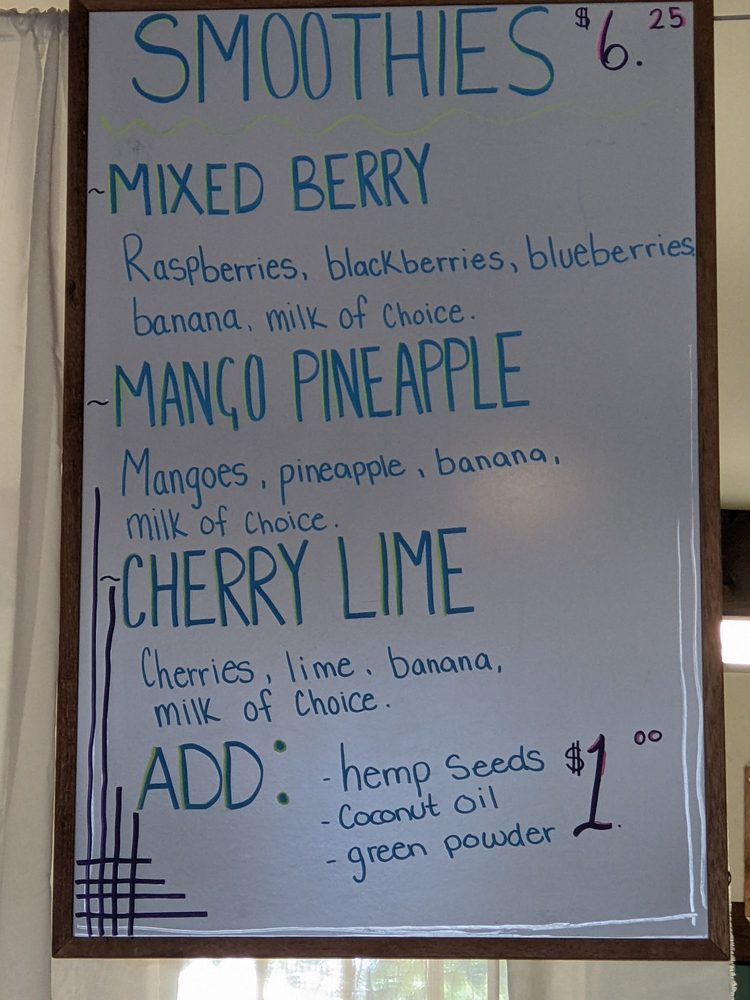 SMOOTHIES $6.25
~MIXED BERRY
Raspberries, blackberries, blueberries,
banana, milk of choice.
~MANGO PINEAPPLE
Mangoes, pineapple, banana,
milk of choice.
~CHERRY LIME
Cherries, lime, banana,
milk of choice.
ADD: - hemp seeds $1.00
- coconut oil
- green powder